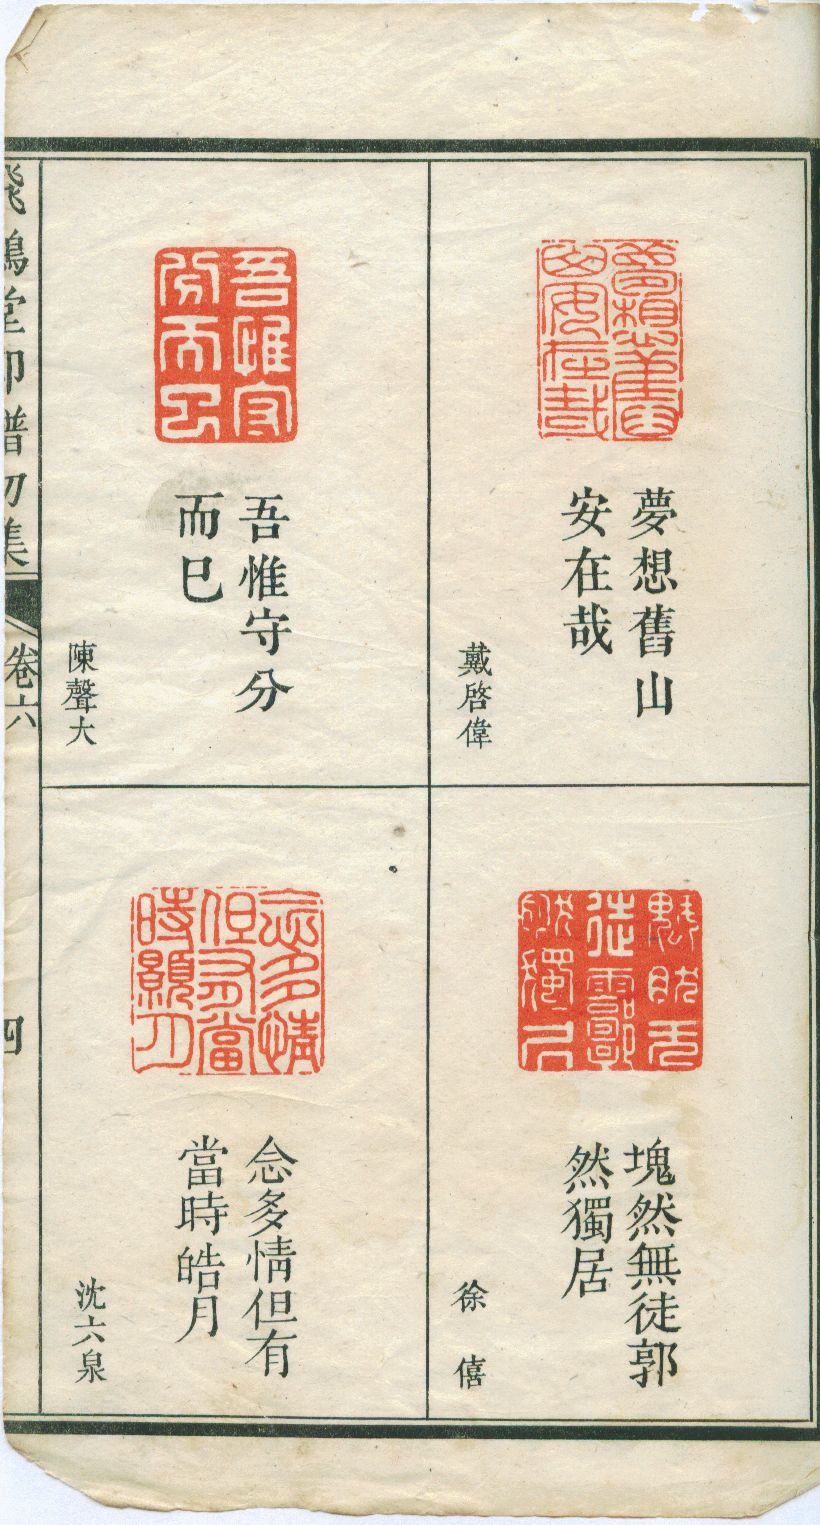 夢想舊山
安在哉
戴啓偉
塊然無徒郭
然獨居
徐僖
吾惟守分
而已
陳聲大
念多情但有
當時皓月
沈六泉
飛鴻堂印譜初集
卷六
四